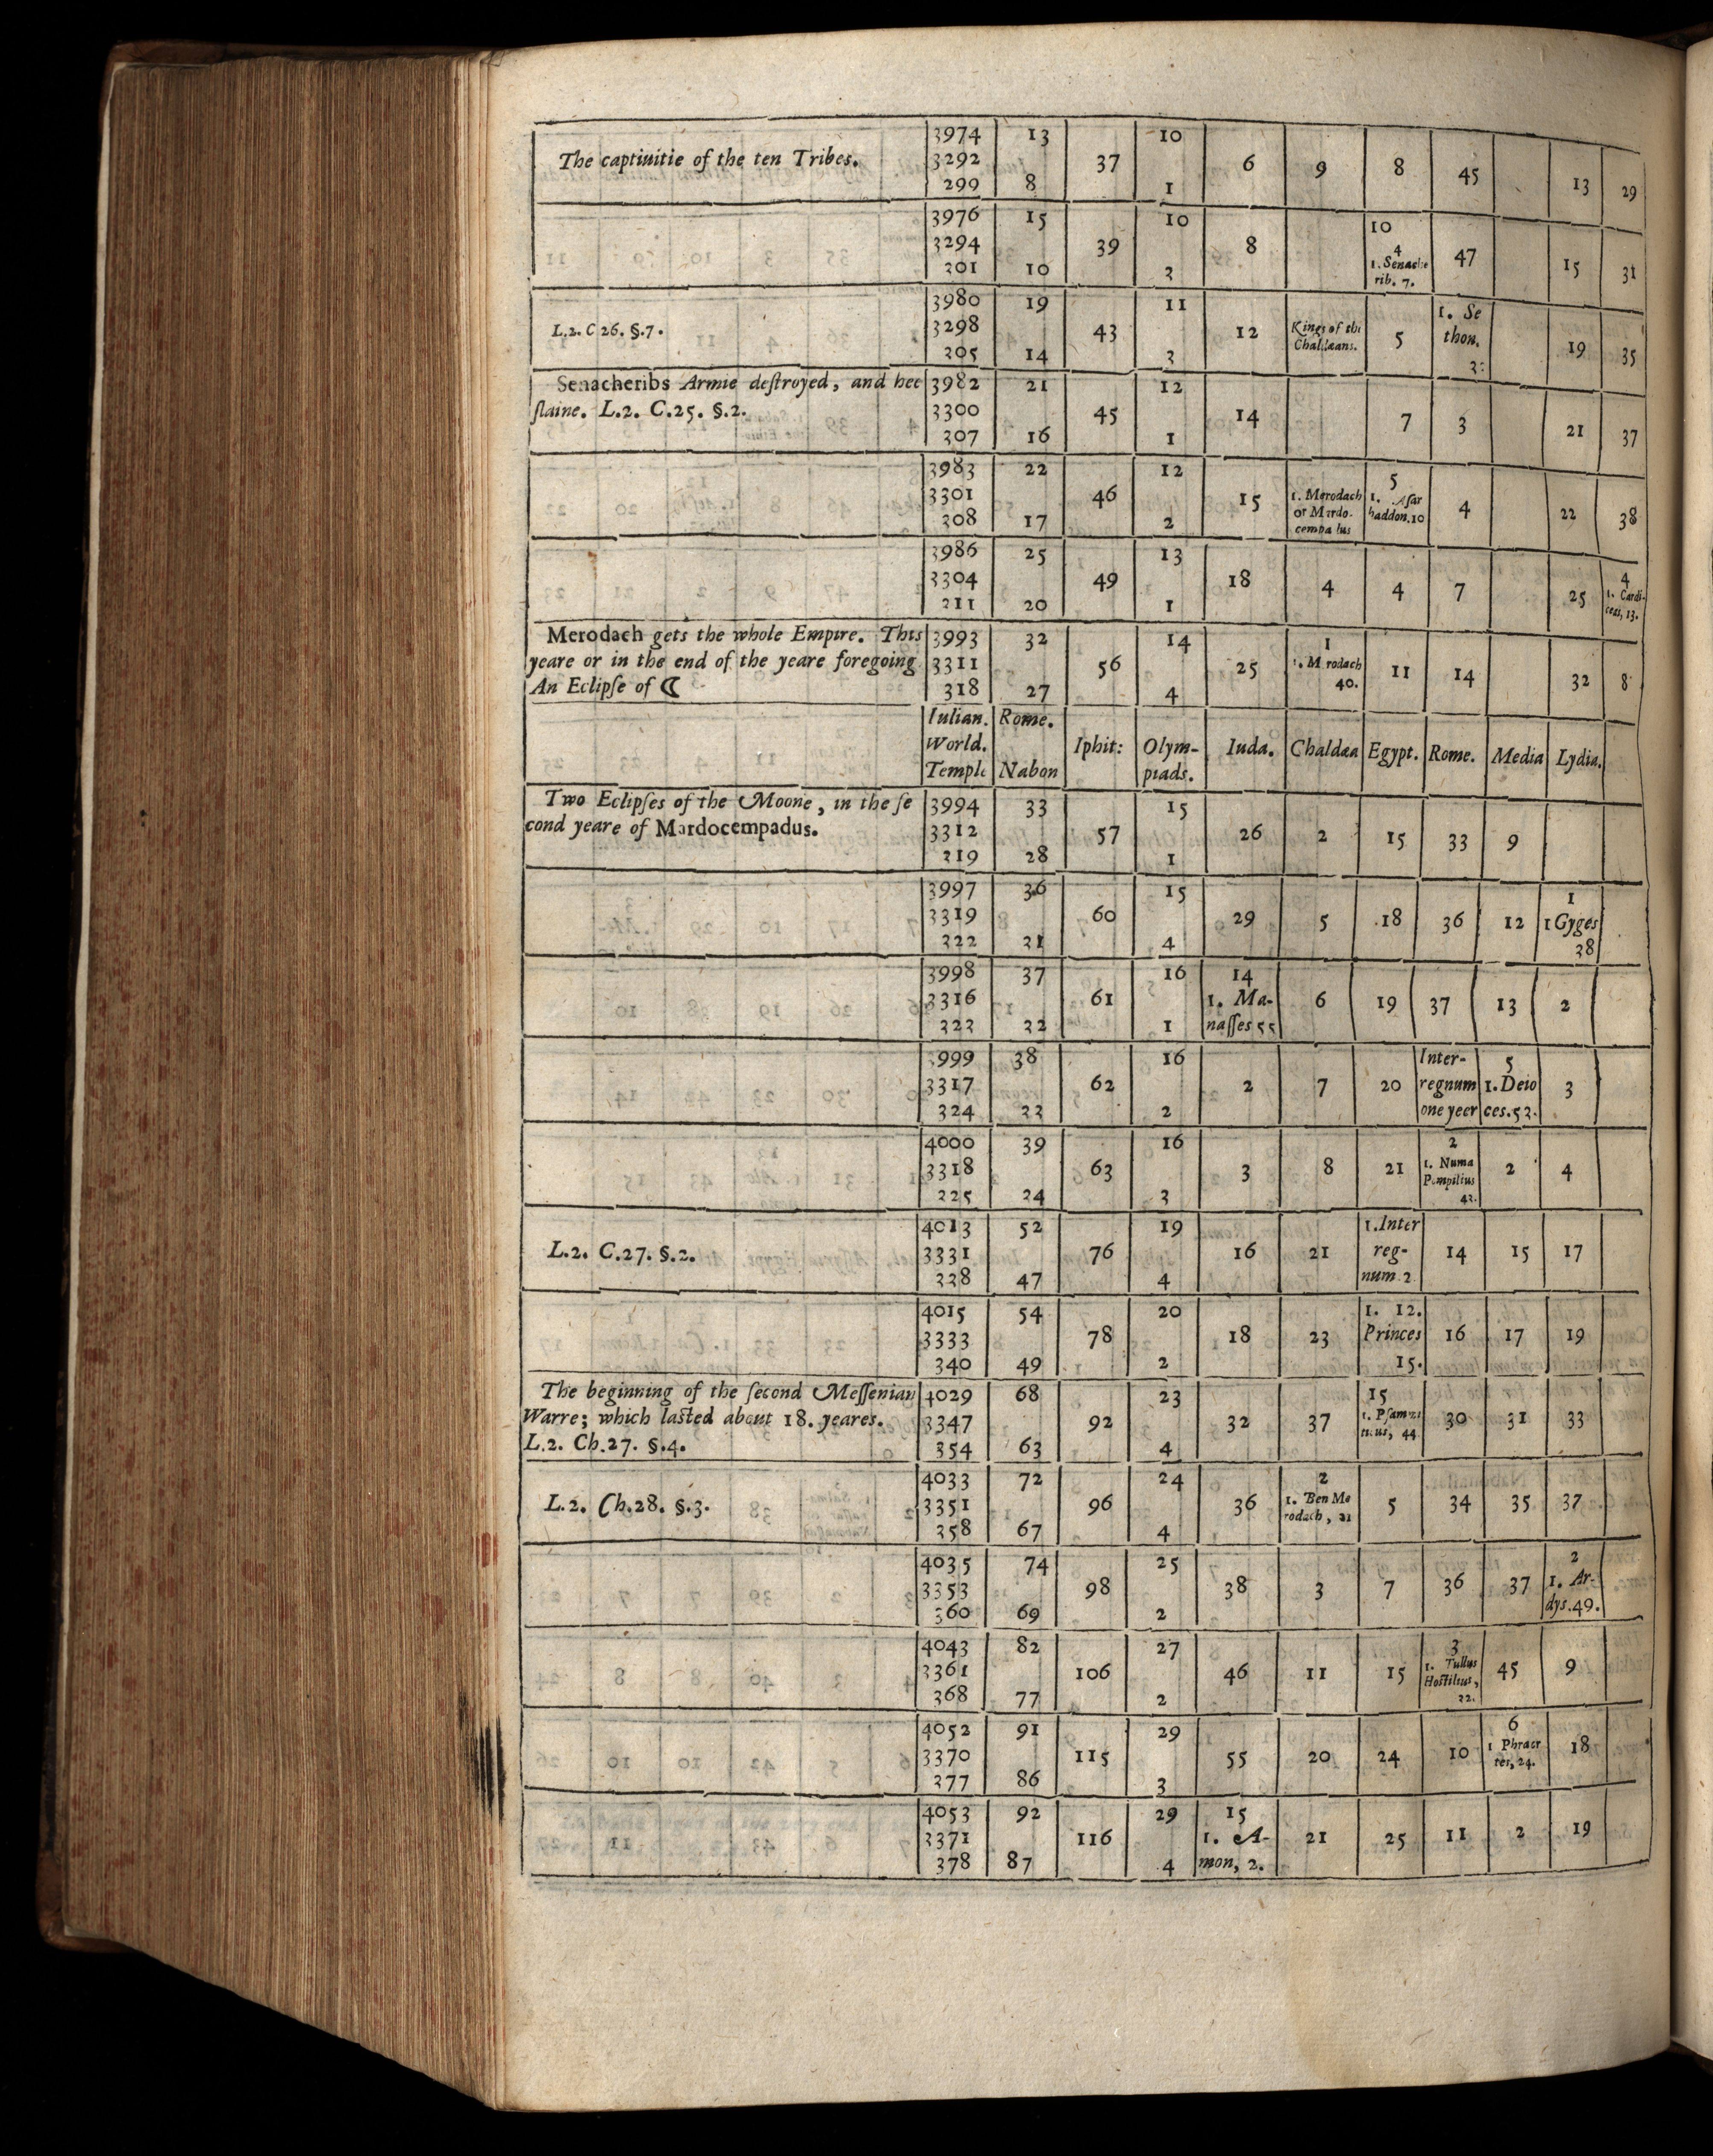 The captiuitie of the ten Tribes. 3974 3292 299 13 8 37 10 1 6 9 8 45 13 29
3976 3294 301 15 10 39 10 3 8 10 4 1. Senache rib. 7. 47 15 31
L.2. C 26. §.7. 3980 3298 305 19 14 43 11 3 12 Kings of the Chaldæans. 5 1. Se thon. 19 35
Senacheribs Armie deſtroyed, and hee
ſlaine. L.2. C.25. §.2. 3982 3300 307 21 16 45 12 1 14 7 3 21 37
3983 3301 308 22 17 46 12 2 15 1. Merodach or Mardo- cempa lus 5 1. Aſar haddon.10 4 22 38
3986 3304 311 25 20 49 13 1 18 4 4 7 25 4 1. Cardi- ceas, 13.
Merodach gets the whole Empire. This
yeare or in the end of the yeare foregoing
An Eclipſe of ☾ 3993 3311 318 32 27 56 14 4 25 1 1. M rodach 40. 11 14 32 8
Iulian. World. Temple Rome. Nabon Iphit: Olym- piads. Iuda. Chaldæa Egypt. Rome. Media Lydia.
Two Eclipſes of the Moone, in the ſe
cond yeare of Mardocempadus. 3994 3312 319 33 28 57 15 1 26 2 15 33 9
3997 3319 322 36 31 60 15 4 29 5 18 36 12 1 1 Gyges 38
3998 3316 323 37 32 61 16 1 14 1. Ma- naſſes 55 6 19 37 13 2
3999 3317 324 38 33 62 16 2 2 7 20 Inter- regnum one yeer 5 1. Deio ces.53. 3
4000 3318 325 39 34 63 16 3 3 8 21 2 1. Numa Pompilius 43. 2 4
L.2. C.27. §.2. 4013 3331 338 52 47 76 19 4 16 21 1.Inter reg- num.2 14 15 17
4015 3333 340 54 49 78 20 2 18 23 1. 12. Princes 15. 16 17 19
The beginning of the ſecond Meſſenian
Warre; which laſted about 18. yeares.
L.2. Ch.27. §.4. 4029 3347 354 68 63 92 23 4 32 37 15 1. Pſam̄i ticus, 44 30 31 33
L.2. Ch.28. §.3. 4033 3351 358 72 67 96 24 4 36 2 1. Ben Me rodach, 21 5 34 35 37
4035 3353 360 74 69 98 25 2 38 3 7 36 37 2 1. Ar- dys.49.
4043 3361 368 82 77 106 27 2 46 11 15 3 1. Tullus Hoſtilius, 32. 45 9
4052 3370 377 91 86 115 29 3 55 20 24 10 6 1 Phraor tes, 24. 18
4053 3371 378 92 87 116 29 4 15 1. A- mon, 2. 21 25 11 2 19